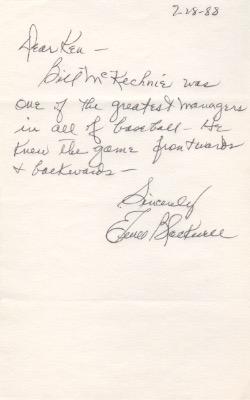 7-28-88
Dear Ken -
Bill McKechnie was
one of the greatest managers
in all of baseball - He
knew the game frontwards
& backwards -
Sincerely
Blackwell